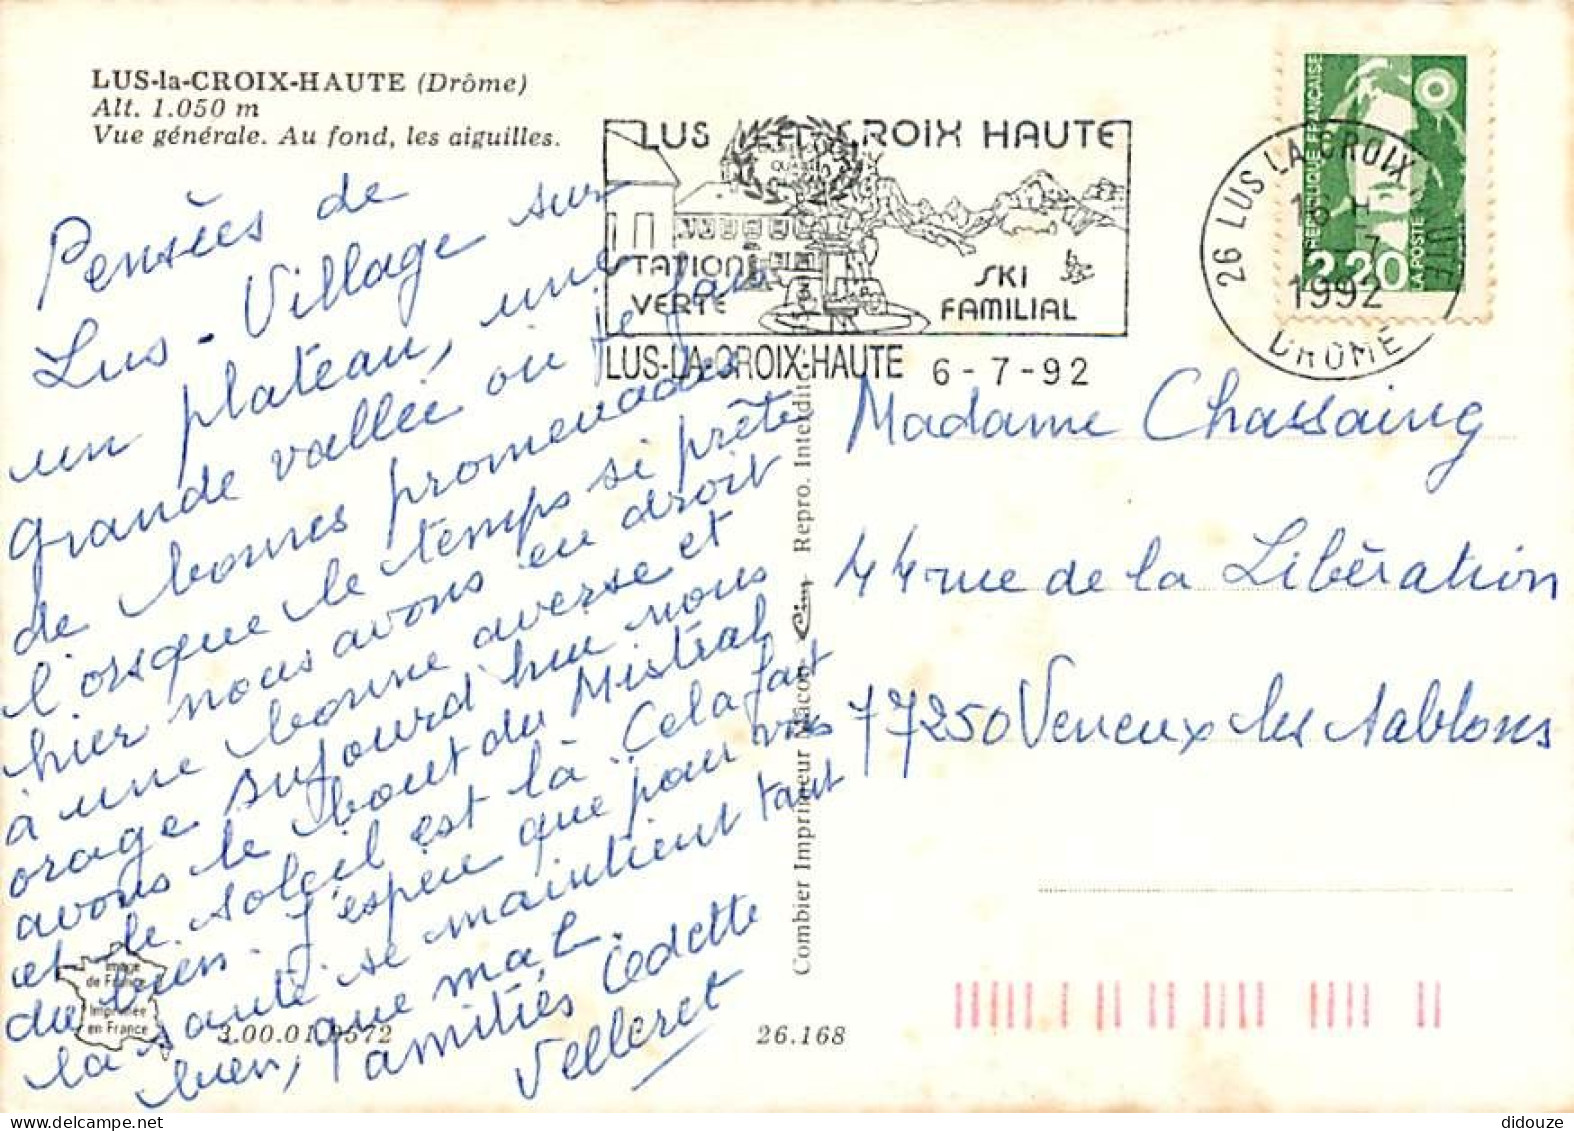 LUS-la-CROIX-HAUTE (Drôme)
Alt. 1.050 m
Vue générale. Au fond, les aiguilles.
Pensées de
Lus-Village sur
un plateau, une
grande vallée où je fais
de bonnes promenades
lorsque le temps si prête
hier nous avons eu droit
à une bonne averse et
orage aujourd'hui nous
avons le bout du Mistral
et le soleil est là. Cela fait
du bien. J'espère que pour vous
la santé se maintient tant
bien, que mal.
amitiés Odette
Velleret
LUS LA CROIX HAUTE
STATION
VERTE
SKI
FAMILIAL
LUS-LA-CROIX-HAUTE 6-7-92
26 LUS LA CROIX HAUTE
16 H
7
1992
DROME
REPUBLIQUE FRANÇAISE
2,20
LA POSTE
Madame Chassaing
44 rue de la Libération
77250 Veneux les Sablons
Combier Imprimeur Mâcon Cim Repro. Interdite
Image
de France
Imprimée
en France
3.00.01.0572
26.168
didouze